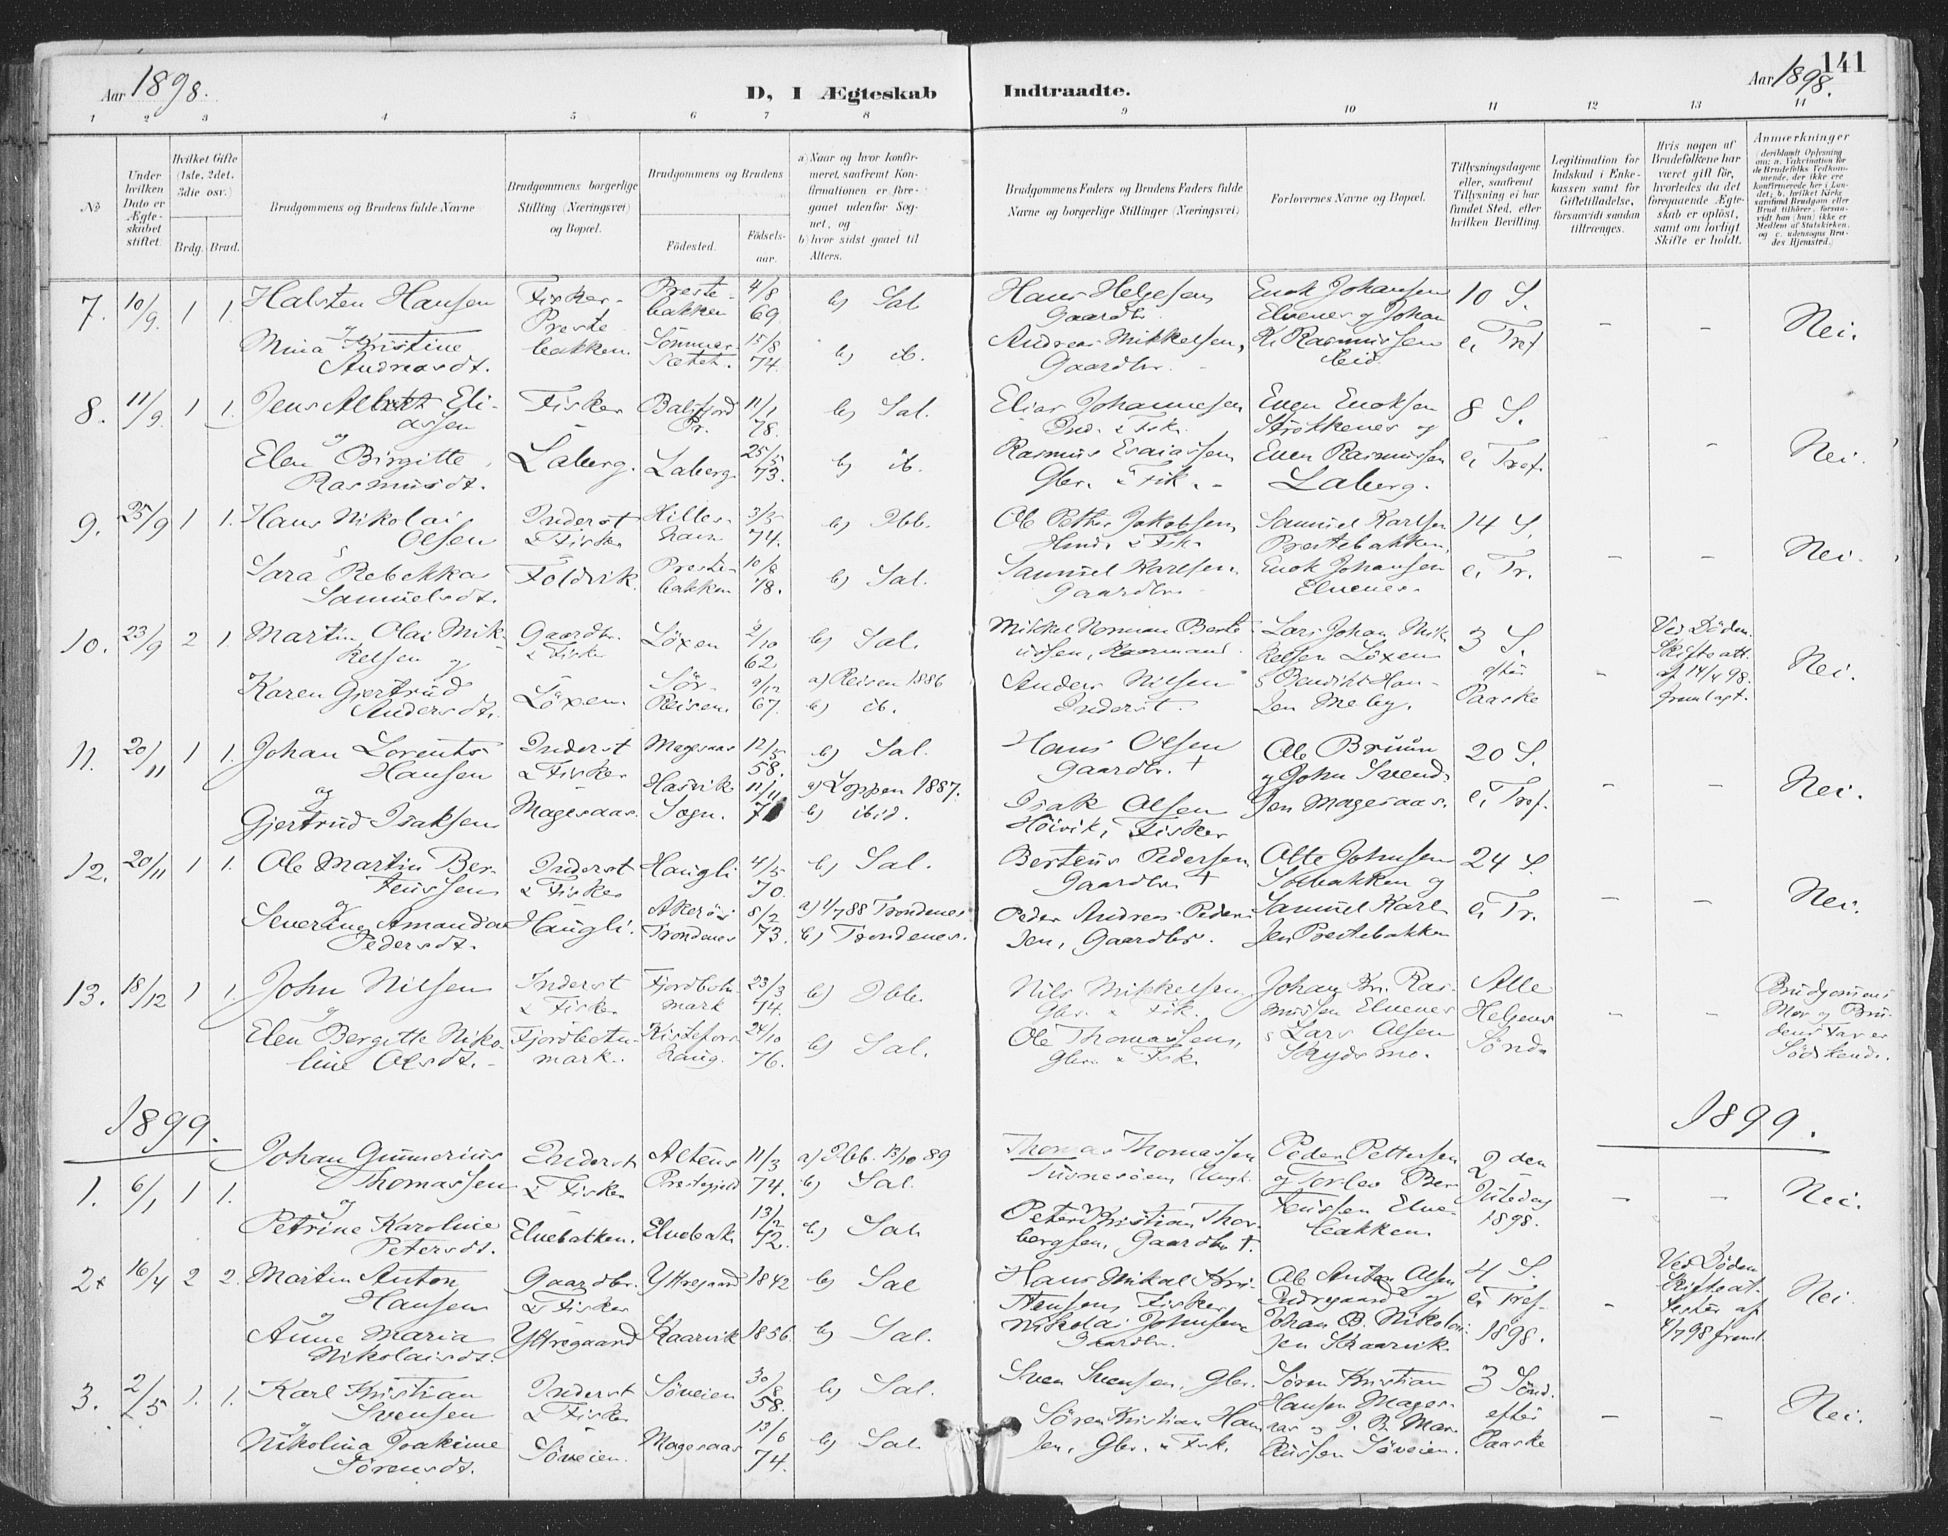 Aar 1898.
D, I Ægteskab Indtraadte.
Aar 1898.
141
1 2 3 4 5 6 7 8 9 10 11 12 13 14
No
Under hvilken Dato er Ægteskabet stiftet.
Hvilket Gifte (1ste, 2det, 3die osv.)
Brdg. Brud.
Brudgommens og Brudens fulde Navne
Brudgommens borgerlige Stilling (Næringsvei) og Bopæl.
Brudgommens og Brudens
Födested.
Födselsaar.
a) Naar og hvor Konfirmeret, saafremt Konfirmationen er foregaaet udenfor Sognet, og
b) hvor sidst gaaet til Alters.
Brudgommens Faders og Brudens Faders fulde Navne og borgerlige Stillinger (Næringsvei)
Forlovernes Navne og Bopæl.
Tillysningsdagene eller, saafremt Tillysning ei har fundet Sted, efter hvilken Bevilling.
Legitimation for Indskud i Enkekassen samt for Giftetilladelse, forsaavidt saadan tiltrænges.
Hvis nogen af Brudefolkene har været gift för, hvorledes da det foregaaende Ægteskab er oplöst, samt om lovligt Skifte er holdt.
Anmærkninger
7. 10/9. 1 1. Halsten Hansen Fisker Prestebakken 4/8 69. b) Sal Hans Helgesen Gaardbr. Enok Johansen Elvenes og Johan 10 S. - - Nei.
og Mina Kristine Andreasdt. Prestebakken. Sommersætet. 15/8 74. b) ib. Andreas Mikkelsen, Gaardbr. Kr. Rasmussen Eid. e, Tref
8. 11/9. 1 1. Jens Albert Eliassen Fisker Balsfjord Pr. 11/1 78. b) Sal. Elias Johannesen Ind. & Fisk. Even Enoksen Strökkenes og 8 S. - - Nei.
og Elen Birgitte Rasmusdt. Laberg. Laberg 25/5 73. b) ib. Rasmus Esaiassen Gbr. & Fisk. Even Rasmussen Laberg. e, Tref.
9. 25/9 1 1. Hans Nikolai Olsen Inderst & Fisker Hilleshavn 3/5 74. b) Ibb. Ole Petter Jakobsen, & Fisk. Samuel Karlsen Prestebakken, 14 S. - - Nei.
Sara Rebekka Samuelsdt. Foldvik. Prestebakken 10/8 78. b) Sal. Samuel Karlsen. Gaardbr. Enok Johansen Elvenes. e, Tr.
10. 23/9 2 1. Martin Olai Mikkelsen og Gaardbr. & Fisker Löxen 2/10 62 b) Sal. Mikkel Norman Lars Johan Mikkelsen Löxen 3 S. efter Paaske - Ved Döden. Skifteatt. af 14/4 98. fremlagt. Nei.
Karen Gjertrud Andersdt. Löxen. Sör-Reisen. 9/12 67. a) Reisen 1886 b) ib. Anders Nilsen Inderst. & Benedikt Hansen Meby.
11. 20/11 1 1. Johan Lorents Hansen Inderst & Fisker Magesaas 12/5 58. b) Sal. Hans Olsen Gaardbr. + Ole Bruun og John Svendsen Magesaas. 20 S. e, Tref. - - Nei.
og Gjertrud Isaksen Magesaas. Hasvik Sogn. 11/11 a) Loppen 1887. b) ibid. Isak Olsen Höivik, Fisker
12. 20/11 1 1. Ole Martin Berteussen Inderst & Fisker Haugli 4/5 70. b) Sal. Berteus Pedersen Gaardbr + Otte Johnsen Solbakken og 24 S. - - Nei.
og Severine Amanda Pedersdt. Haugli. Trondenes 8/2 73. a) 1/7 88 Trondenes b) Trondenes. Peder Andreas Pedersen, Gaardbr. Samuel Karlsen Prestebakken e, Tr.
13. 18/12 1 1. John Nilsen Inderst & Fisker Fjordbotnmark 23/3 74. b) Ibb. Nils Mikkelsen Gbr. & Fisk. Johan Kr. Rasmussen Elvenes Alle Helgens Sönd. - - Brudgommens Mor og Brudens Far er Södskend.
og Elen Bergitte Nikoline Olsdt. Fjordbotnmark. 24/10 76. b) Sal. Ole Thomassen, Gbr. & Fisk. & Lars Olsen Skydsmo.
1899. 1899.
1. 6/1 1 1. Johan Gunnerius Thomassen Inderst & Fisker Altens Prestegjeld 11/3 74. a) Ibb. 13/10 89 b) Sal. Thomas Thomassen Peder Pettersen og Torlev Berteussen Elvebakken 2den Juledag 1898. - - Nei.
og Petrine Karoline Petersdt. Elvebakken. Elvebak 13/12 72. b) Sal. Peter Kristian Thorbergsen, Gaardbr +.
2. 16/4 2 2. Martin Anton Hansen Gaardbr. & Fisker Yttregaard 1842 b) Sal Hans Mikal Kristensen, Fisker Ole Anton Olsen Indregaard og 4 S. e, Tref. 1898. - Ved Döden. Skifteattester af 4/7 98 freml. Nei
og Anne Maria Nikolaisdt. Yttregaard Skaarvik 1856. b) Sal. Nikolai Johnsen Gaardbr. Johan B. Nikolaisen Skaarvik.
3. 2/5 1. 1. Karl Kristian Svensen Inderst & Fisker Söveien 30/8 58. b) Sal. Sven Svensen, Gbr. Sören Kristian Hansen Magesaas og J. B. Markussen Söveien. 3 Sönd. efter Paaske - - Nei.
og Nikolina Joakime Sörensdt. Söveien. Magesaas 13/6 74. b) Sal. Sören Kristian Hansen, Gbr. & Fisk.